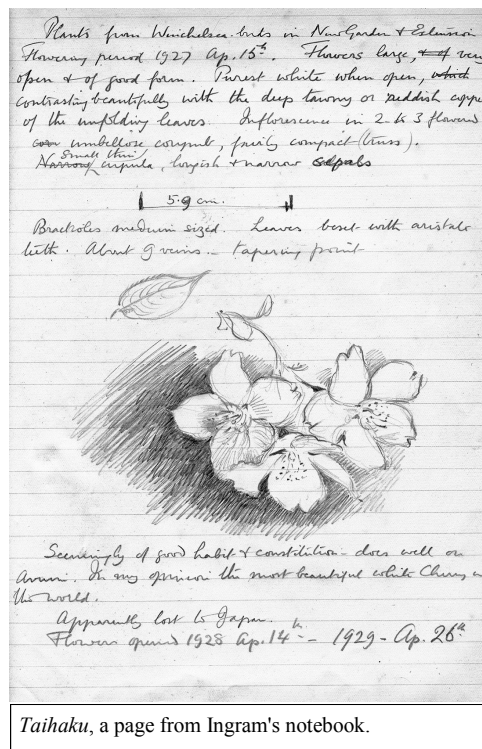 Plants from Winchelsea. buds in New Garden & Extension
Flowering period 1927 Ap. 15th. Flowers large, & of very
open & of good form. Purest white when open, which
contrasting beautifully with the deep tawny or reddish coppe
of the unfolding leaves. Inflorescence in 2 to 3 flowered
umbellose corymb, fairly compact (truss).
Small thin
Narrow cupula, longish & narrow sepals
5.9 cm.
Bracteoles medium sized. Leaves beset with aristate
teeth. About 9 veins - tapering point
Seemingly of good habit & constitution - does well on
Avium. In my opinion the most beautiful white Cherry in
the world.
Apparently lost to Japan.
Flowers opened 1928 Ap. 14th - 1929 - Ap. 26th
Taihaku, a page from Ingram's notebook.